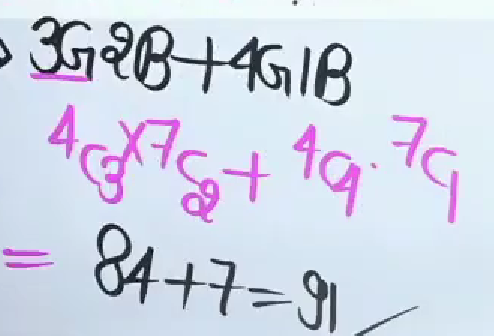 3G2B+4G1B
⁴C₃×⁷C₂+⁴C₄·⁷C₁
= 84+7=91